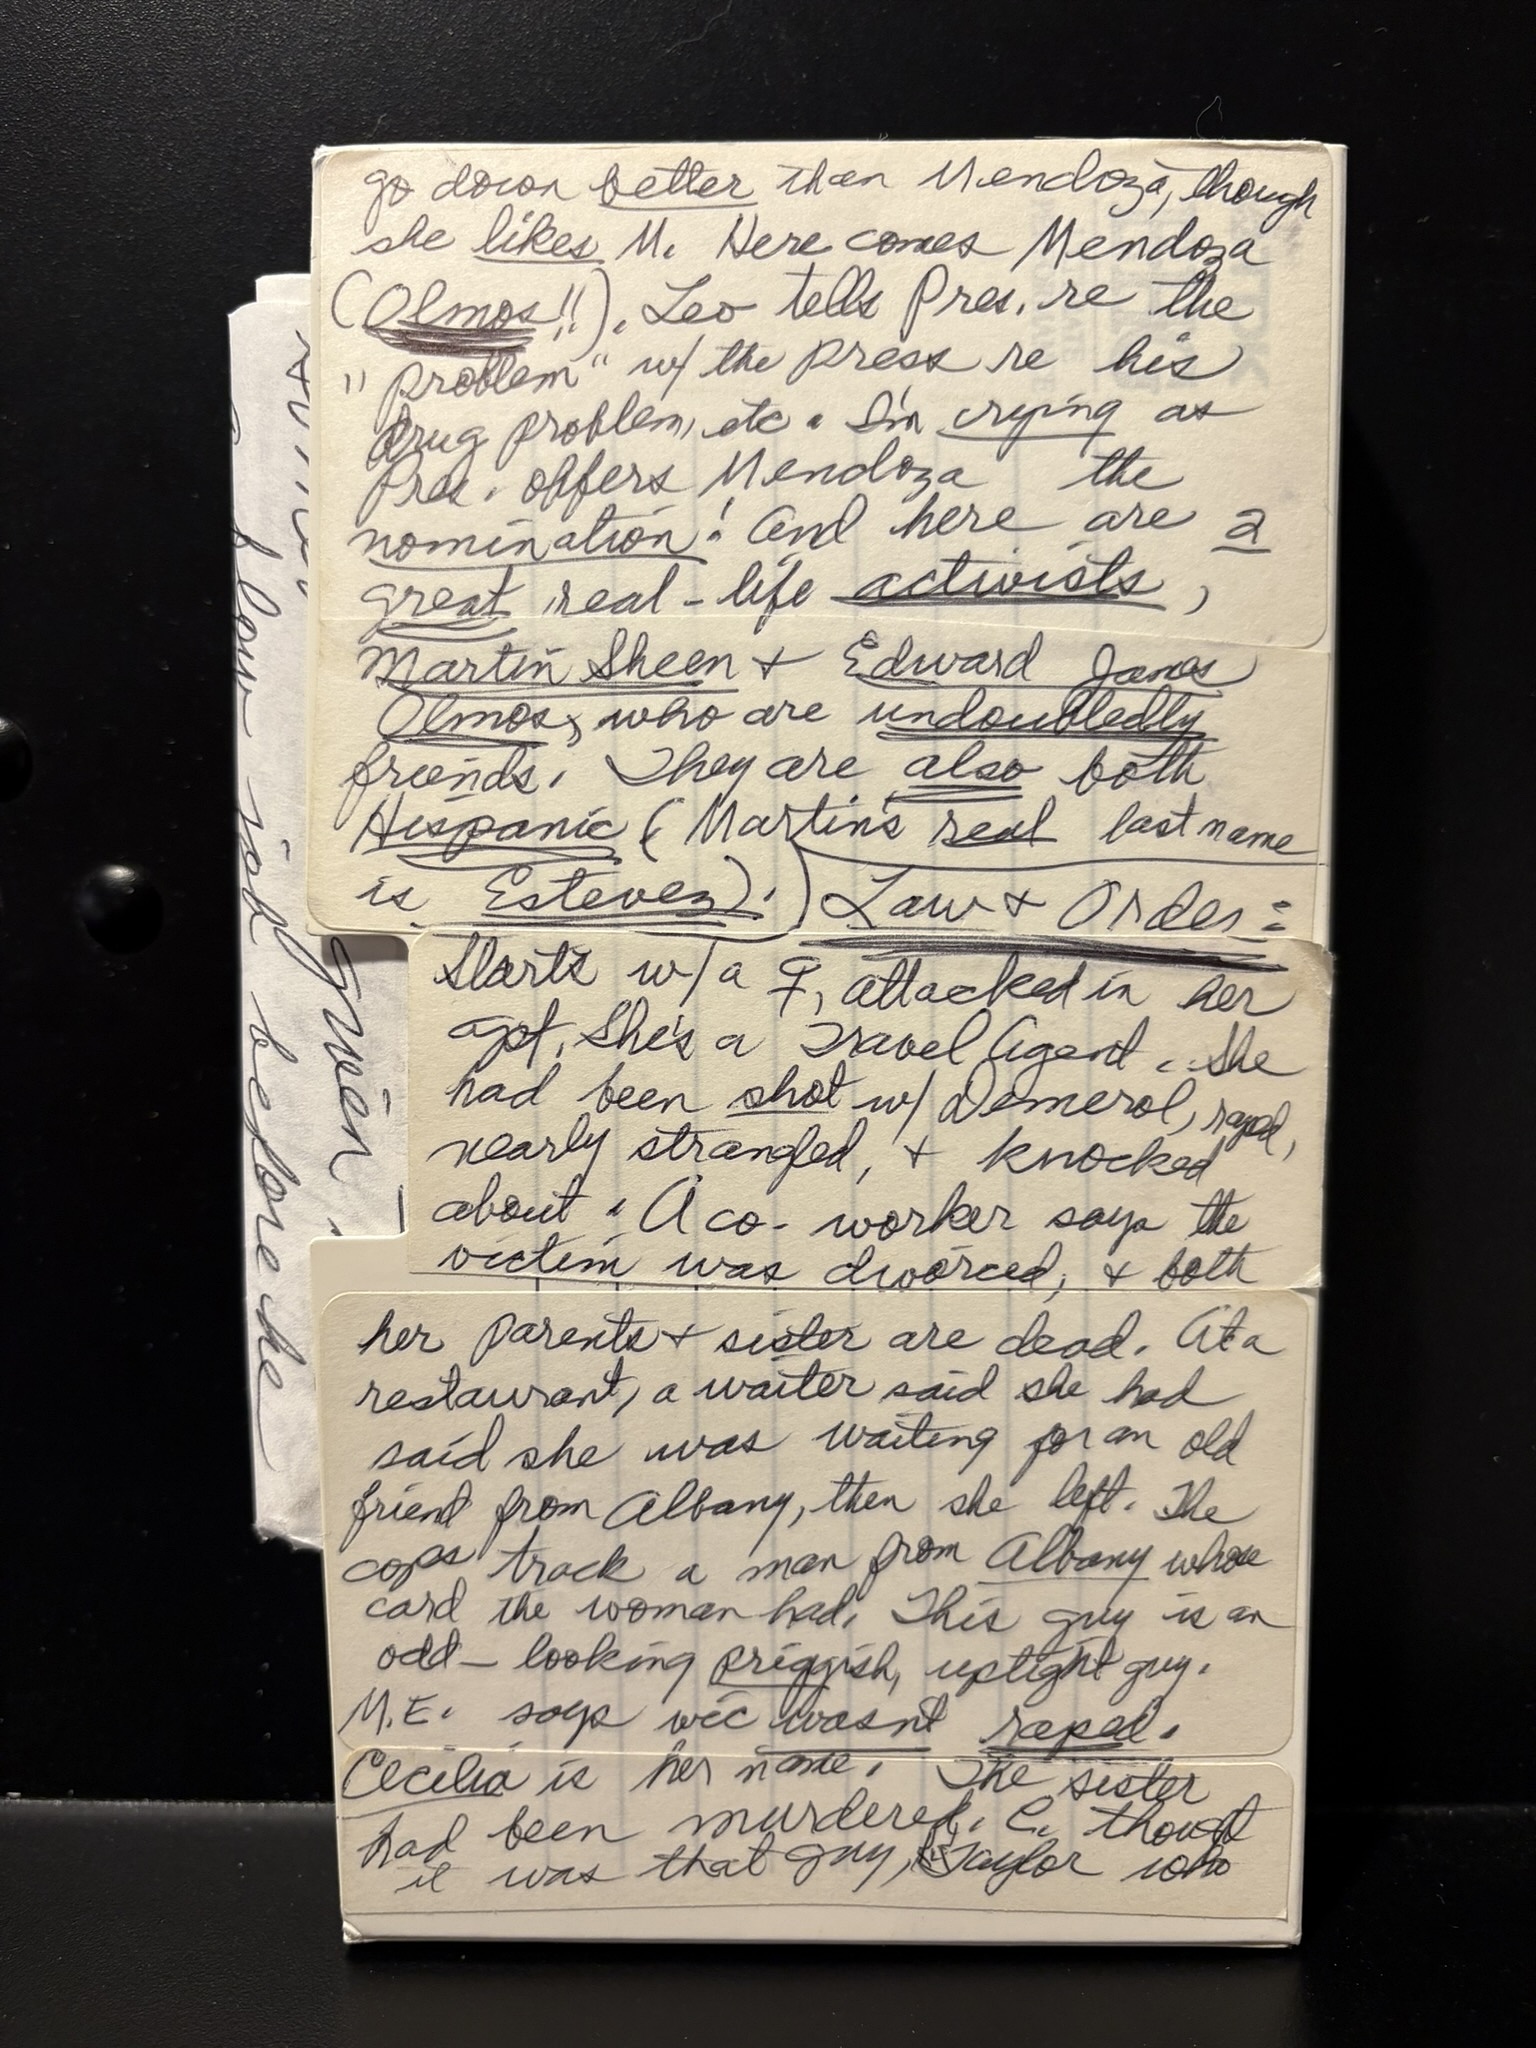 go down better than Mendoza, though
she likes M. Here comes Mendoza
(Olmos!!). Leo tells Pres. re the
"problem" w/ the press re his
drug problem, etc. I'm crying as
Pres. offers Mendoza the
nomination! And here are 2
great real-life activists,
Martin Sheen + Edward James
Olmos, who are undoubtedly
friends. They are also both
Hispanic (Martin's real last name
is Estevez).) Law + Order:
Starts w/ a ♀, attacked in her
apt. She's a Travel Agent. She
had been shot w/ Demerol, raped,
nearly strangled, + knocked
about. A co-worker says the
victim was divorced, + both
her parents + sister are dead. At a
restaurant, a waiter said she had
said she was waiting for an old
friend from Albany, then she left. The
cops track a man from Albany whose
card the woman had. This guy is an
odd-looking priggish, uptight guy.
M.E. says vic wasn't raped.
Cecilia is her name. The sister
had been murdered. C. thought
it was that guy, Taylor who
slow
before she